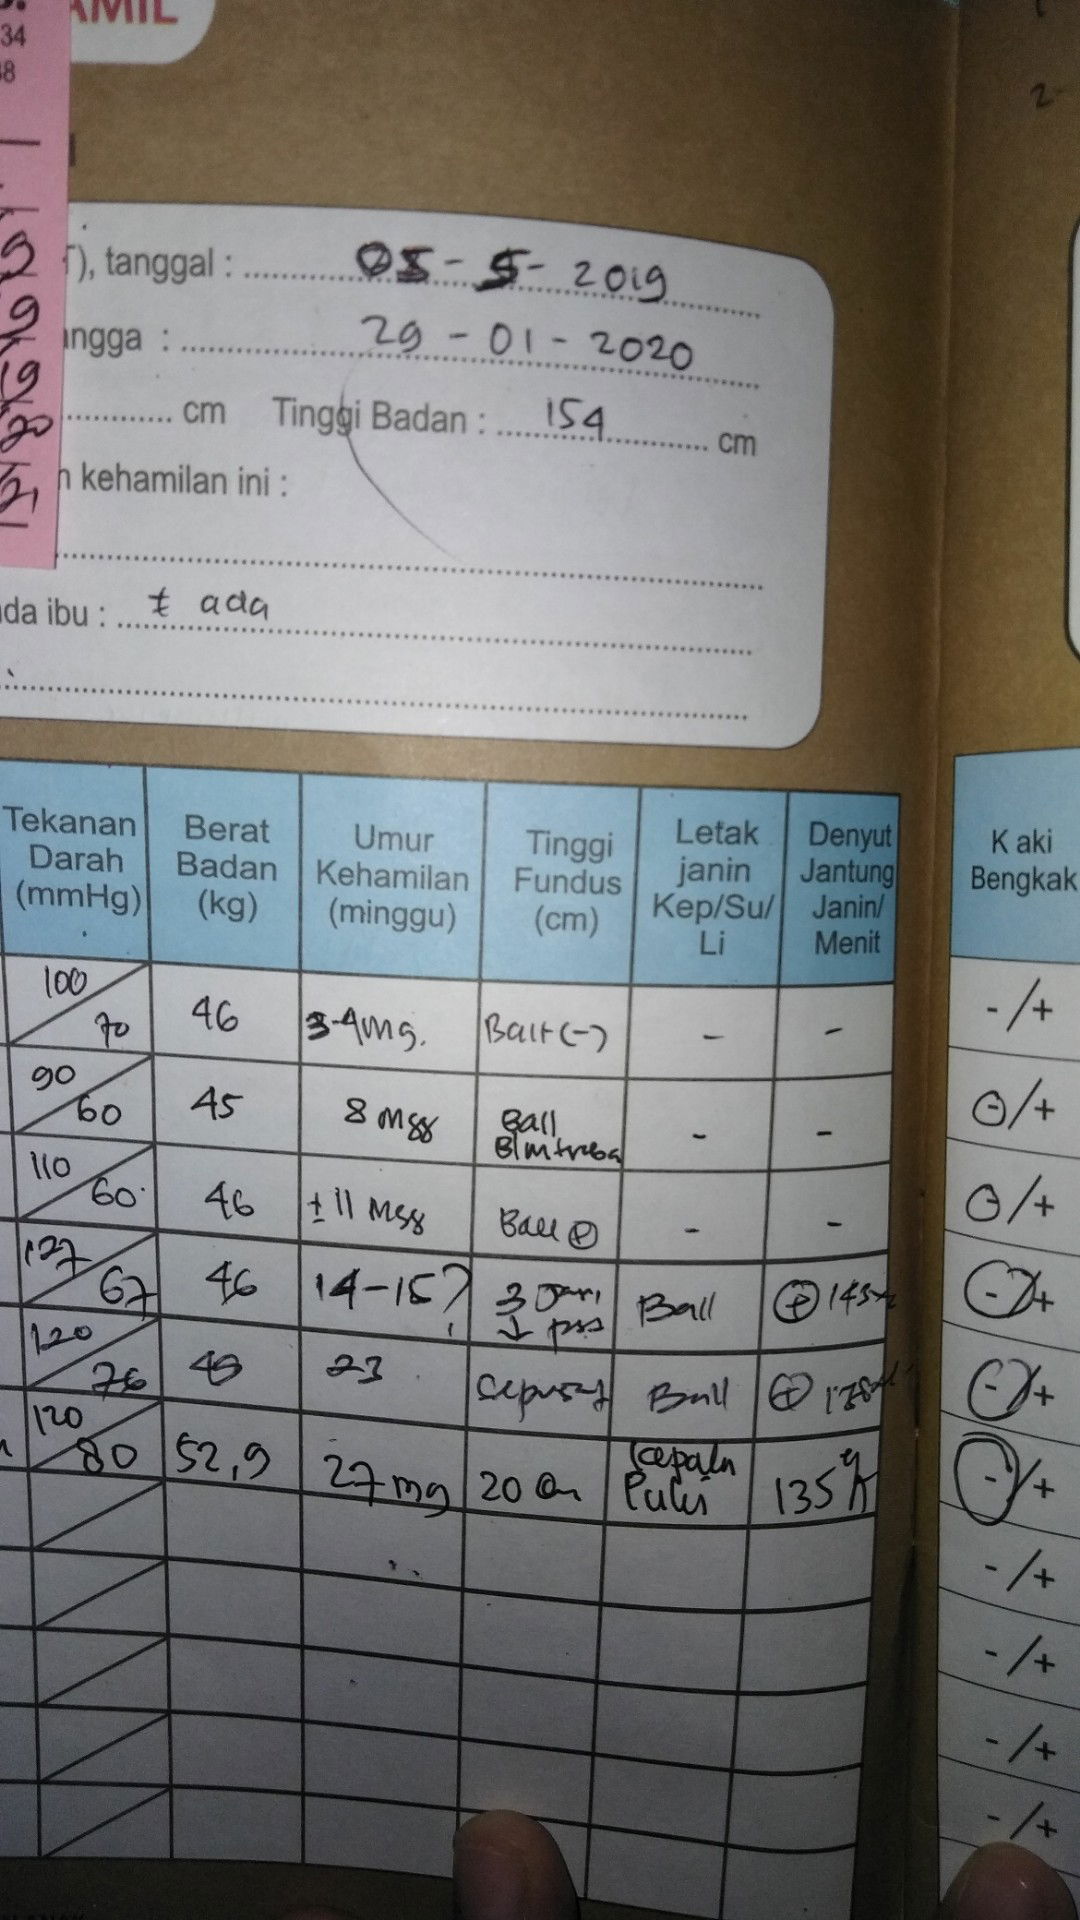 AMIL
34
2
), tanggal : 05 - 5 - 2019
angga : 29 - 01 - 2020
cm Tinggi Badan : 154 cm
n kehamilan ini :
da ibu : t ada
Tekanan Darah (mmHg)
Berat Badan (kg)
Umur Kehamilan (minggu)
Tinggi Fundus (cm)
Letak janin Kep/Su/ Li
Denyut Jantung Janin/ Menit
Kaki Bengkak
100/70 46 3-4 mg. Ball (-) - - -/+
90/60 45 8 mgg Ball - - -/+
110/60 46 ± 11 mgg Ball + - - -/+
127/67 46 14-15 3 Jari ↓ Ball + 145 -/+
120/76 23 Ball + -/+
120/80 52,9 27 mg 20 cm Kepala 135 -/+
-/+
-/+
-/+
-/+